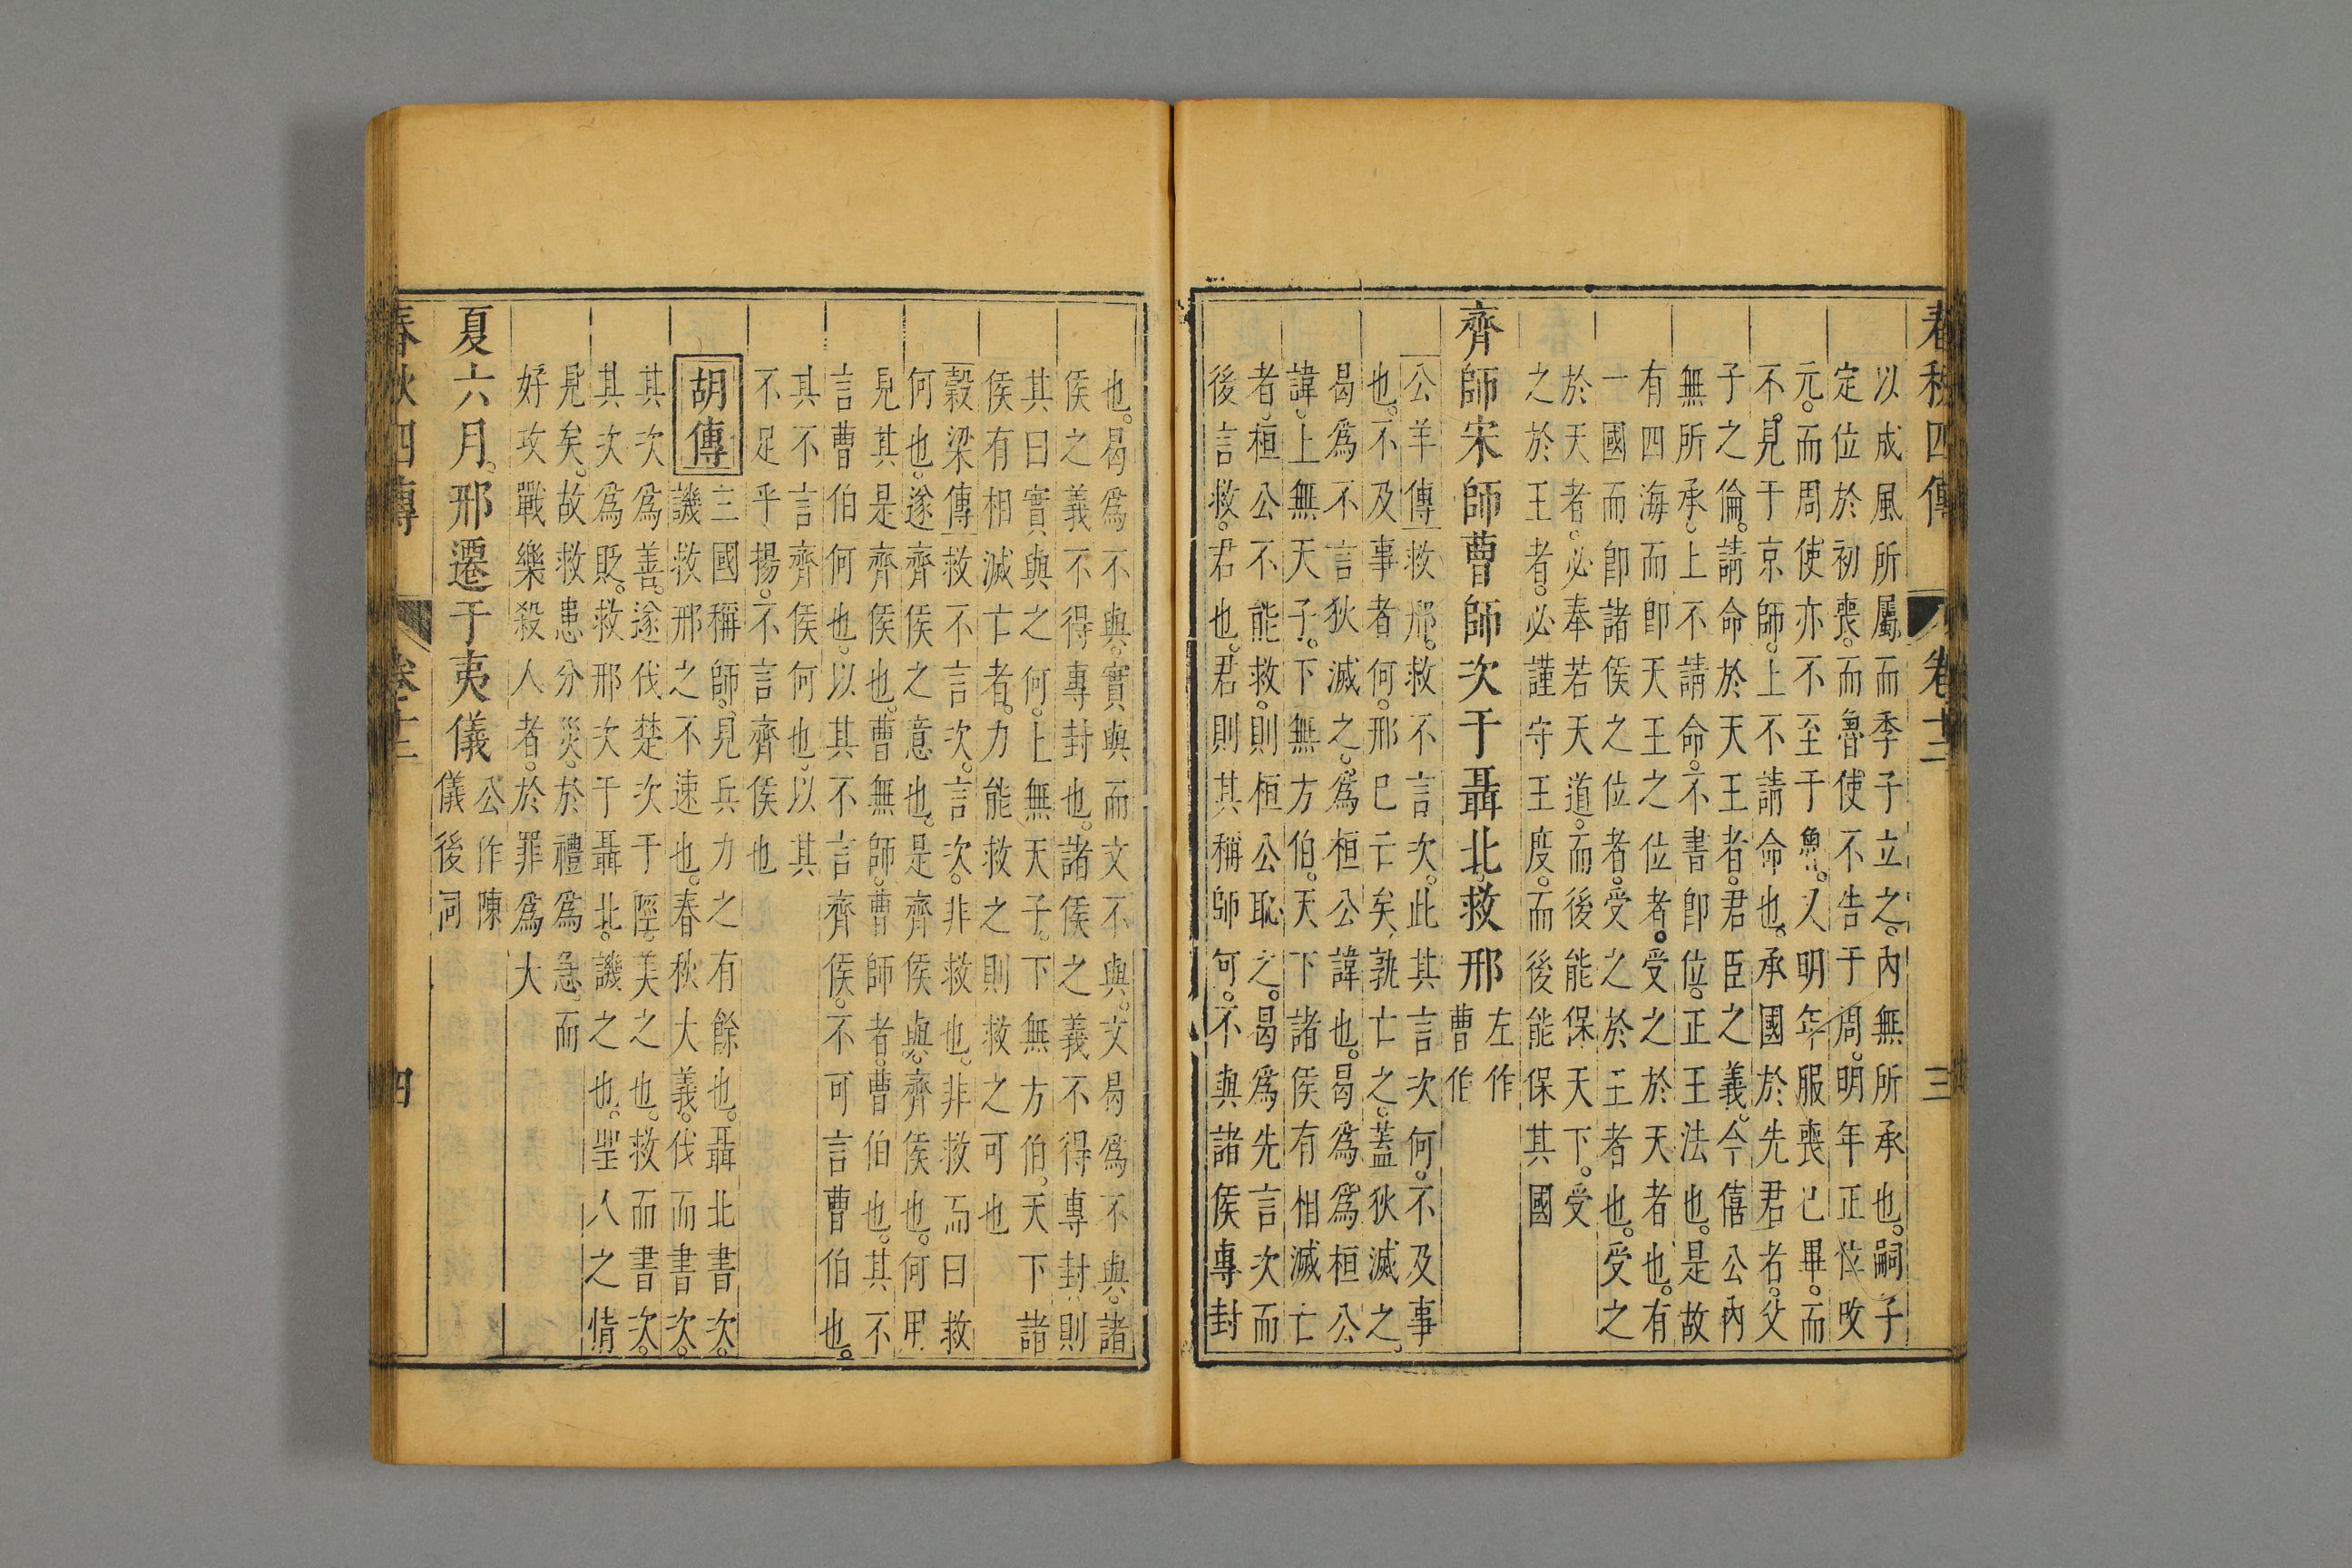 春秋四傳 卷十二 三
以成風所屬而季子立之。內無所承也。嗣子
定位於初喪。而魯使不告于周。明年正位改
元。而周使亦不至于魯。又明年服喪已畢。而
不見于京師。上不請命也。承國於先君者。父
子之倫。請命於天王者。君臣之義。今僖公內
無所承。上不請命。不書卽位。正王法也。是故
有四海而卽天王之位者。受之於天者也。有
一國而卽諸侯之位者。受之於王者也。受之
於天者。必奉若天道。而後能保天下。受
之於王者。必謹守王度。而後能保其國
齊師宋師曹師次于聶北救邢
左作
曹伯
公羊傳救邢。救不言次。此其言次何。不及事
也。不及事者何。邢已亡矣、孰亡之。蓋狄滅之。
曷爲不言狄滅之。爲桓公諱也。曷爲爲桓公
諱。上無天子。下無方伯。天下諸侯有相滅亡
者。桓公不能救。則桓公恥之。曷爲先言次而
後言救。君也。君則其稱師何。不與諸侯專封
也。曷爲不與。實與而文不與。文曷爲不與。諸
侯之義不得專封也。諸侯之義不得專封。則
其曰實與之何。上無天子。下無方伯。天下諸
侯有相滅亡者。力能救之則救之可也
穀梁傳救不言次。言次。非救也。非救而曰救
何也。遂齊侯之意也。是齊侯與。齊侯也。何用
見其是齊侯也。曹無師。曹師者。曹伯也。其不
言曹伯何也。以其不言齊侯。不可言曹伯也。
其不言齊侯何也。以其
不足乎揚。不言齊侯也
胡傳
三國稱師。見兵力之有餘也。聶北書次。
譏救邢之不速也。春秋大義。伐而書次。
其次爲善。遂伐楚次于陘。美之也。救而書次。
其次爲貶。救邢次于聶北。譏之也。聖人之情
見矣。故救患分災。於禮爲急。而
好攻戰樂殺人者。於罪爲大
夏六月。邢遷于夷儀
公作陳
儀後同
春秋四傳 卷十二 四